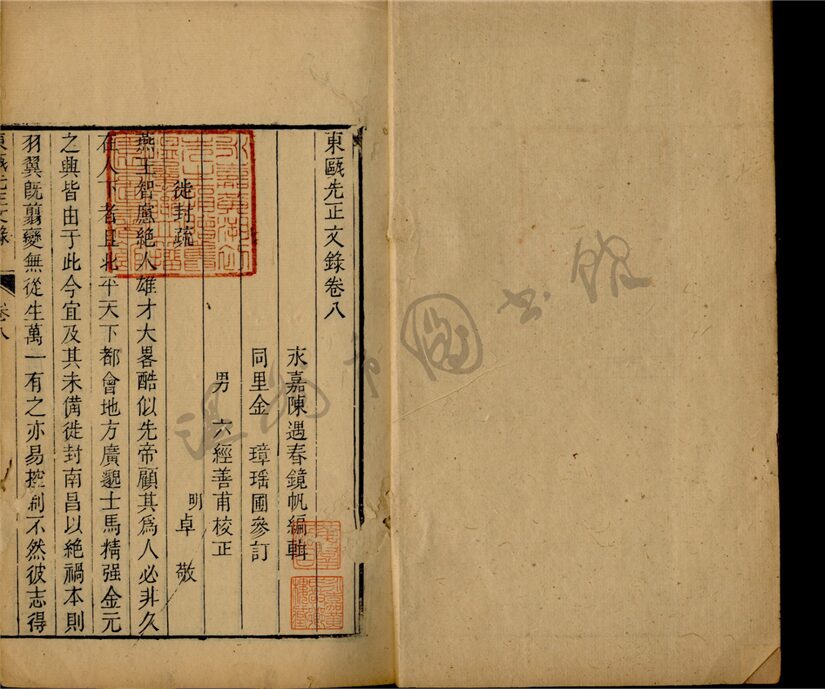 東甌先正文錄卷八
永嘉陳遇春鏡帆編輯
同里金璋瑶圃參訂
男六經善甫校正
徙封疏
明卓敬
燕王智慮絶人雄才大畧酷似先帝顧其爲人必非久
在人下者且北平天下都會地方廣邈士馬精强金元
之典皆由于此今宜及其未備徙封南昌以絶禍本則
羽翼既翦變無從生萬一有之亦易控制不然彼志得
東甌先正文錄
卷八
溫州市圖书館